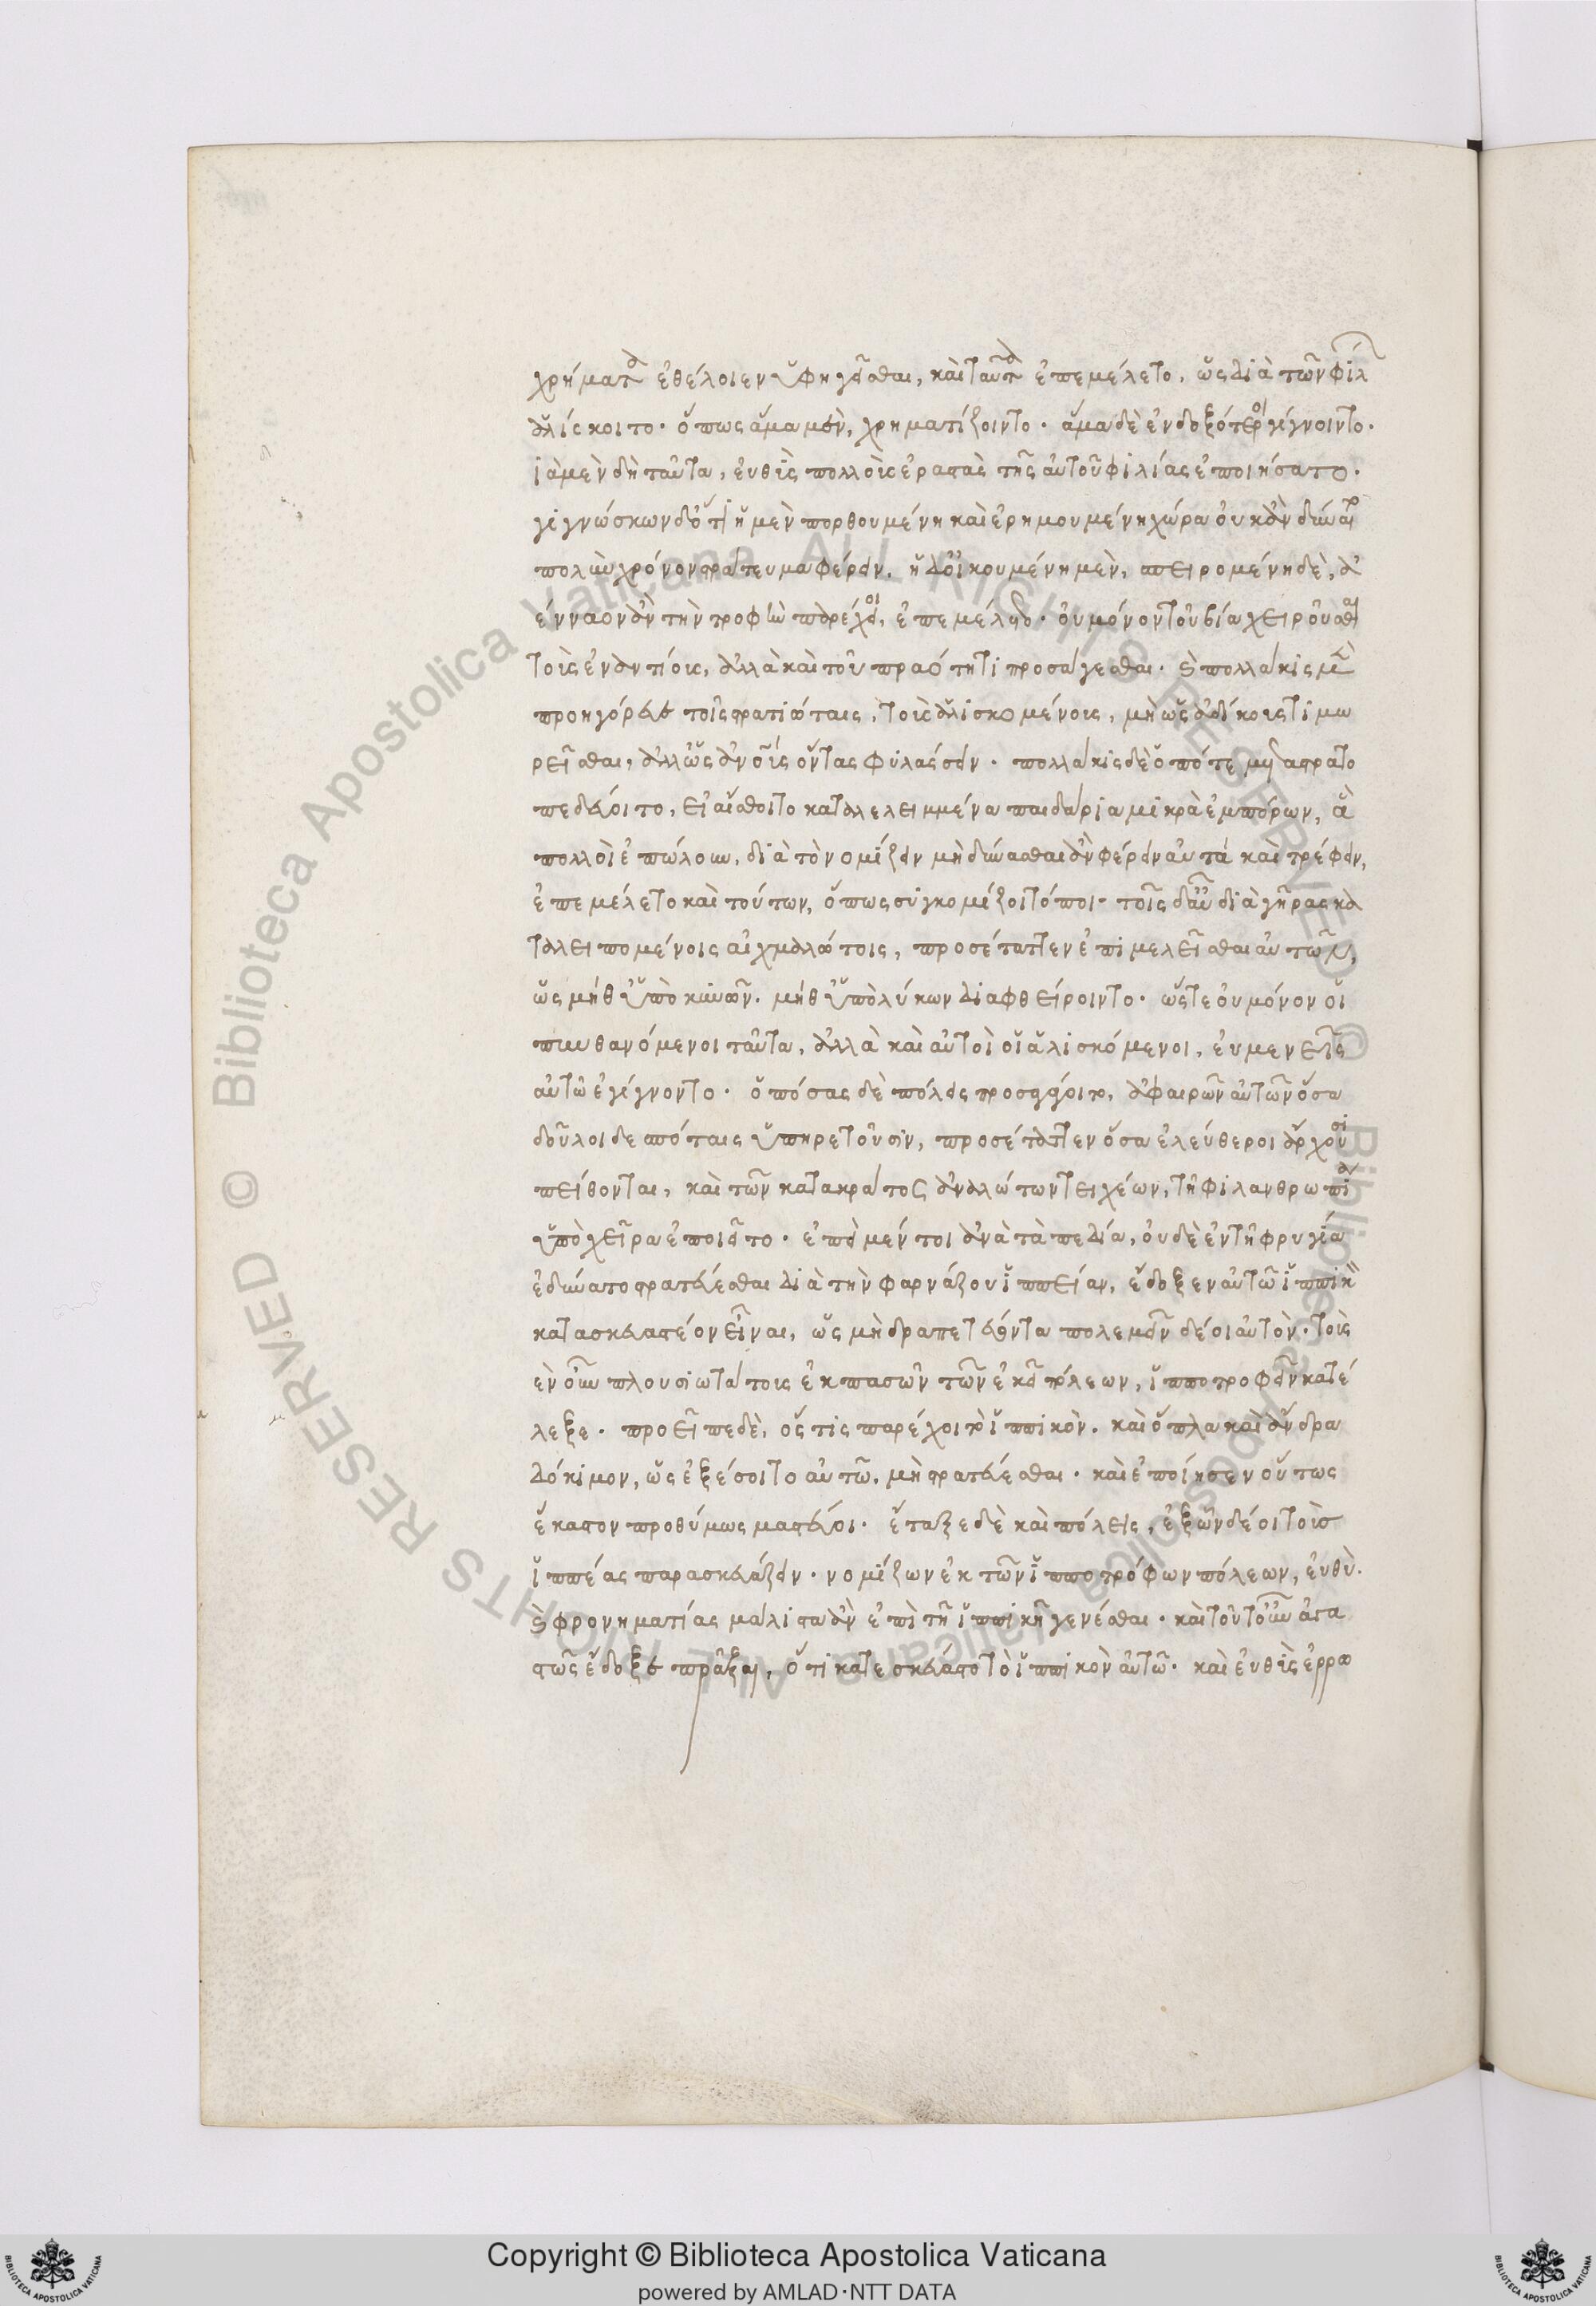 χρήματα ἐθέλοιεν ὑφηγεῖσθαι, καὶ ταῦτα ἐπεμέλετο, ὥς διὰ τῶν φίλων
ἁλίσκοιτο· ὅπως ἅμα μὲν, χρηματίζοιντο· ἅμα δὲ ἐνδοξότεροι γίγνοιντο·
ιὰ μὲν δὴ ταῦτα, ἐυθὺς πολλοὺς ἐραστὰς τῆς αὐτοῦ φιλίας ἐποιήσατο·
γιγνώσκων δ' ὅτι ἡ μὲν πορθουμένη καὶ ἐρημουμένη χώρα οὐκ ἂν δύναιτο
πολὺν χρόνον στράτευμα φέρειν, ἡ δ' οἰκουμένη μὲν, σπειρομένη δὲ, ἀ
έννaον ἂν τὴν τροφὴν παρέχοι, ἐπεμέλετο· οὐ μόνον τοῦ βία χειροῦσθαι
τοὺς ἐναντίους, ἀλλὰ καὶ τοῦ πραότητι προσάγεσθαι· καὶ πολλάκις μὲν
προηγόρευε τοῖς στρατιώταις, τοὺς ἁλισκομένους, μὴ ὡς ἀδίκους τιμω
ρεῖσθαι, ἀλλ' ὡς ἀνθρώπους ὄντας φυλάσσειν· πολλάκις δὲ ὁπότε μεταστρατο
πεδεύοιτο, εἰ αἴσθοιτο καταλελειμμένα παιδάρια μικρὰ ἐμπόρων, ἃ
πολλοὶ ἐπώλουν, διὰ τὸ νομίζειν μὴ δύνασθαι ἂν φέρειν αὐτὰ καὶ τρέφειν,
ἐπεμέλετο καὶ τούτων, ὅπως συγκομίζοιτό ποι· τοῖς δ' αὖ διὰ γῆρας κα
ταλειπομένοις αἰχμαλώτοις, προσέταττεν ἐπιμελεῖσθαι αὐτῶν,
ὡς μήθ' ὑπὸ κυνῶν, μήθ' ὑπὸ λύκων διαφθείροιντο· ὥστε οὐ μόνον οἱ
πυνθανόμενοι ταῦτα, ἀλλὰ καὶ αὐτοὶ οἱ ἁλισκόμενοι, ἐυμενεῖς
αὐτῶ ἐγίγνοντο· ὁπόσας δὲ πόλεις προσαγάγοιτο, ἀφαιρῶν αὐτῶν ὅσα
δοῦλοι δεσπόταις ὑπηρετοῦσιν, προσέταττεν ὅσα ἐλεύθεροι ἄρχουσι
πείθονται, καὶ τῶν κατακράτος ἀναλώτων τειχέων, τῆ φιλανθρωπία
ὑπὸ χεῖρα ἐποιεῖτο· ἐπεὶ μέντοι ἀνὰ τὰ πεδία, οὐδὲ ἐν τῆ φρυγία
ἐδύνατο στρατεύεσθαι διὰ τὴν φαρνάζου ἱππείαν, ἔδοξεν αὐτῶ ἱππικὸν
κατασκευαστέον εἶναι, ὡς μὴ δραπετεύοντα πολεμεῖν δέοι αὐτὸν· τοὺς
ἐν οὖν πλουσιωτάτους ἐκ πασῶν τῶν ἐκεῖ πόλεων, ἱπποτροφεῖν κατέ
λεξε· προεῖπε δὲ, ὅς τις παρέχοιτο ἱππικὸν, καὶ ὅπλα καὶ ἄνδρα
δόκιμον, ὡς ἐξέσοιτο αὐτῶ, μὴ στρατεύεσθαι· καὶ ἐποίησεν οὕτως
ἕκαστον προθύμως μαστεύοι· ἔταξε δὲ καὶ πόλεις, ἐξ ὧν δέοι τοὺς
ἱππέας παρασκευάζειν· νομίζων ἐκ τῶν ἱπποτρόφων πόλεων, ἐυθὺς
καὶ φρονηματίας μάλιστα ἂν ἐπὶ τῆ ἱππικῆ γενέσθαι· καὶ τοῦτ' οὖν ἀγα
στῶς ἔδοξε πρᾶξαι, ὅτι κατεσκεύαστο τὸ ἱππικὸν αὐτῶ· καὶ ἐυθὺς ἐρρω
Copyright © Biblioteca Apostolica Vaticana
powered by AMLAD·NTT DATA